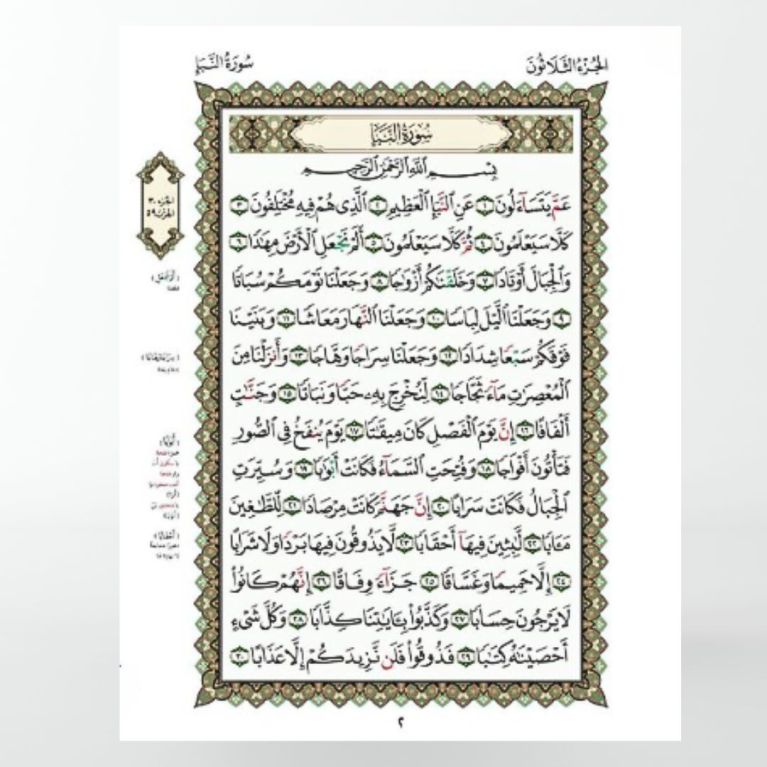 الجُزْءُ الثَّلَاثُونَ
سُورَةُ النَّبَإِ
سُورَةُ النَّبَإِ
بِسْمِ اللَّهِ الرَّحْمَٰنِ الرَّحِيمِ
عَمَّ يَتَسَآءَلُونَ ١ عَنِ النَّبَإِ الْعَظِيمِ ٢ الَّذِي هُمْ فِيهِ مُخْتَلِفُونَ ٣
كَلَّا سَيَعْلَمُونَ ٤ ثُمَّ كَلَّا سَيَعْلَمُونَ ٥ أَلَمْ نَجْعَلِ الْأَرْضَ مِهَٰدًا ٦
وَالْجِبَالَ أَوْتَادًا ٧ وَخَلَقْنَٰكُمْ أَزْوَٰجًا ٨ وَجَعَلْنَا نَوْمَكُمْ سُبَاتًا
٩ وَجَعَلْنَا اللَّيْلَ لِبَاسًا ١٠ وَجَعَلْنَا النَّهَارَ مَعَاشًا ١١ وَبَنَيْنَا
فَوْقَكُمْ سَبْعًا شِدَادًا ١٢ وَجَعَلْنَا سِرَاجًا وَهَّاجًا ١٣ وَأَنزَلْنَا مِنَ
الْمُعْصِرَٰتِ مَآءً ثَجَّاجًا ١٤ لِّنُخْرِجَ بِهِۦ حَبًّا وَنَبَاتًا ١٥ وَجَنَّٰتٍ
أَلْفَافًا ١٦ إِنَّ يَوْمَ الْفَصْلِ كَانَ مِيقَٰتًا ١٧ يَوْمَ يُنفَخُ فِي الصُّورِ
فَتَأْتُونَ أَفْوَاجًا ١٨ وَفُتِحَتِ السَّمَآءُ فَكَانَتْ أَبْوَٰبًا ١٩ وَسُيِّرَتِ
الْجِبَالُ فَكَانَتْ سَرَابًا ٢٠ إِنَّ جَهَنَّمَ كَانَتْ مِرْصَادًا ٢١ لِّلطَّٰغِينَ
مَـَٔابًا ٢٢ لَّٰبِثِينَ فِيهَآ أَحْقَابًا ٢٣ لَّا يَذُوقُونَ فِيهَا بَرْدًا وَلَا شَرَابًا
٢٤ إِلَّا حَمِيمًا وَغَسَّاقًا ٢٥ جَزَآءً وِفَاقًا ٢٦ إِنَّهُمْ كَانُوا۟
لَا يَرْجُونَ حِسَابًا ٢٧ وَكَذَّبُوا۟ بِـَٔايَٰتِنَا كِذَّابًا ٢٨ وَكُلَّ شَيْءٍ
أَحْصَيْنَٰهُ كِتَٰبًا ٢٩ فَذُوقُوا۟ فَلَن نَّزِيدَكُمْ إِلَّا عَذَابًا ٣٠
الجزء ٣٠
الحزب ٥٩
٢